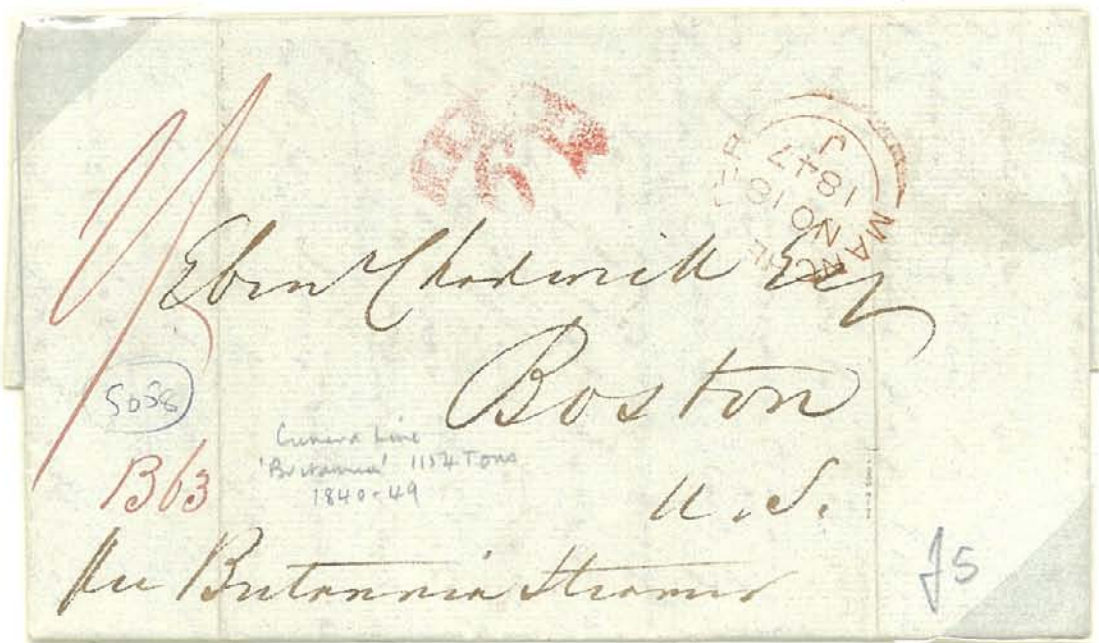 SHIP
6
MANCHESTER
J
NO 18
1847
1/
Eben Chadwick Esq
Boston
U.S.
5038
B63
Cunard Line
'Britannia' 1154 Tons
1840-49
per Britannia Steamer
J5